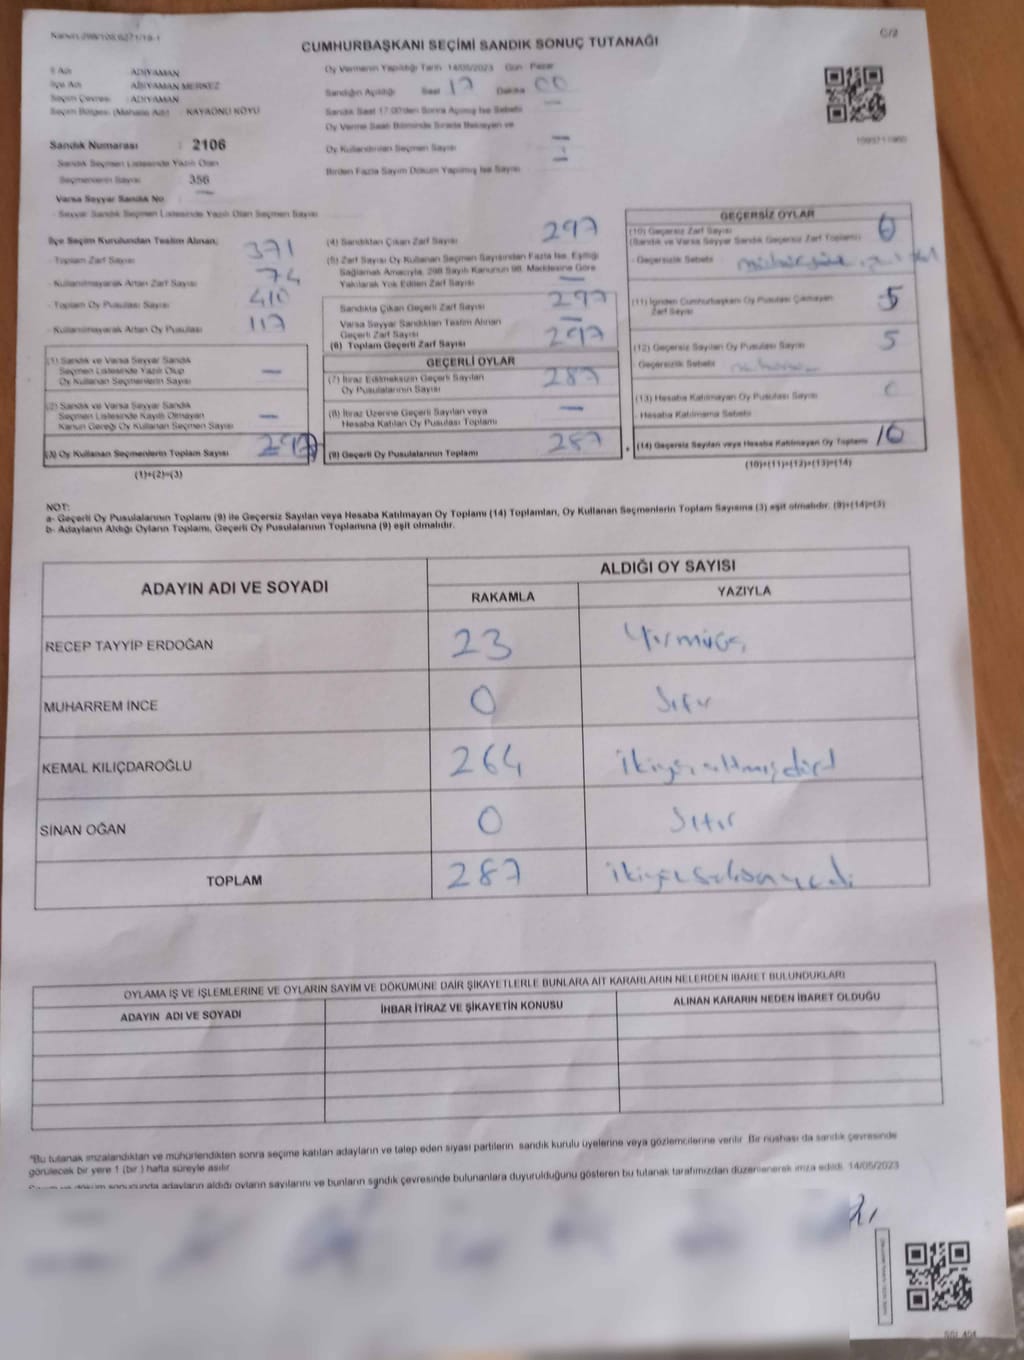 CUMHURBAŞKANI SEÇİMİ SANDIK SONUÇ TUTANAĞI
C/2
İl Adı : ADIYAMAN
İlçe Adı : ADIYAMAN MERKEZ
Seçim Çevresi : ADIYAMAN
Seçim Bölgesi (Mahalle Adı) : KAYAÖNÜ KÖYÜ
Oy Vermenin Yapıldığı Tarih 14/05/2023 Gün : Pazar
Sandığın Açıldığı Saat 17 Dakika 00
Sandık Saat 17:00'den Sonra Açılmış İse Sebebi —
Oy Verme Saati Bitiminde Sırada Bekleyen ve
Oy Kullandırılan Seçmen Sayısı —
Birden Fazla Sayım Döküm Yapılmış İse Sayısı
Sandık Numarası : 2106
Sandık Seçmen Listesinde Yazılı Olan
Seçmenlerin Sayısı 356
Varsa Seyyar Sandık No —
- Seyyar Sandık Seçmen Listesinde Yazılı Olan Seçmen Sayısı
İlçe Seçim Kurulundan Teslim Alınan;
- Toplam Zarf Sayısı 371
- Kullanılmayarak Artan Zarf Sayısı 74
- Toplam Oy Pusulası Sayısı 410
- Kullanılmayarak Artan Oy Pusulası 117
(1) Sandık ve Varsa Seyyar Sandık
Seçmen Listesinde Yazılı Olup
Oy Kullanan Seçmenlerin Sayısı —
(2) Sandık ve Varsa Seyyar Sandık
Seçmen Listesinde Kayıtlı Olmayan
Kanun Gereği Oy Kullanan Seçmen Sayısı —
(3) Oy Kullanan Seçmenlerin Toplam Sayısı 297
(1)+(2)=(3)
(4) Sandıktan Çıkan Zarf Sayısı 297
(5) Zarf Sayısı Oy Kullanan Seçmen Sayısından Fazla İse, Eşitliği
Sağlamak Amacıyla, 298 Sayılı Kanunun 98. Maddesine Göre
Yakılarak Yok Edilen Zarf Sayısı —
Sandıkta Çıkan Geçerli Zarf Sayısı 297
Varsa Seyyar Sandıktan Teslim Alınan
Geçerli Zarf Sayısı —
(6) Toplam Geçerli Zarf Sayısı 297
GEÇERLİ OYLAR
(7) İtiraz Edilmeksizin Geçerli Sayılan
Oy Pusulalarının Sayısı 287
(8) İtiraz Üzerine Geçerli Sayılan veya
Hesaba Katılan Oy Pusulası Toplamı —
(9) Geçerli Oy Pusulalarının Toplamı 287
GEÇERSİZ OYLAR
(10) Geçersiz Zarf Sayısı
(Sandık ve Varsa Seyyar Sandık Geçersiz Zarf Toplamı) 0
- Geçersizlik Sebebi
(11) İçinden Cumhurbaşkanı Oy Pusulası Çıkmayan
Zarf Sayısı 5
(12) Geçersiz Sayılan Oy Pusulası Sayısı 5
Geçersizlik Sebebi
(13) Hesaba Katılmayan Oy Pusulası Sayısı
- Hesaba Katılmama Sebebi
(14) Geçersiz Sayılan veya Hesaba Katılmayan Oy Toplamı 10
(10)+(11)+(12)+(13)=(14)
NOT:
a- Geçerli Oy Pusulalarının Toplamı (9) ile Geçersiz Sayılan veya Hesaba Katılmayan Oy Toplamı (14) Toplamları, Oy Kullanan Seçmenlerin Toplam Sayısına (3) eşit olmalıdır. (9)+(14)=(3)
b- Adayların Aldığı Oyların Toplamı, Geçerli Oy Pusulalarının Toplamına (9) eşit olmalıdır.
ADAYIN ADI VE SOYADI
ALDIĞI OY SAYISI
RAKAMLA YAZIYLA
RECEP TAYYİP ERDOĞAN 23 Yirmiüç
MUHARREM İNCE 0 Sıfır
KEMAL KILIÇDAROĞLU 264 ikiyüzaltmışdört
SİNAN OĞAN 0 Sıfır
TOPLAM 287 ikiyüzseksenyedi
OYLAMA İŞ VE İŞLEMLERİNE VE OYLARIN SAYIM VE DÖKÜMÜNE DAİR ŞİKAYETLERLE BUNLARA AİT KARARLARIN NELERDEN İBARET BULUNDUKLARI
ADAYIN ADI VE SOYADI İHBAR İTİRAZ VE ŞİKAYETİN KONUSU ALINAN KARARIN NEDEN İBARET OLDUĞU
"Bu tutanak imzalandıktan ve mühürlendikten sonra seçime katılan adayların ve talep eden siyasi partilerin sandık kurulu üyelerine veya gözlemcilerine verilir. Bir nüshası da sandık çevresinde
görülecek bir yere 1 (bir ) hafta süreyle asılır.
Sayım ve döküm sonucunda adayların aldığı oyların sayılarını ve bunların sandık çevresinde bulunanlara duyurulduğunu gösteren bu tutanak tarafımızdan düzenlenerek imza edildi. 14/05/2023